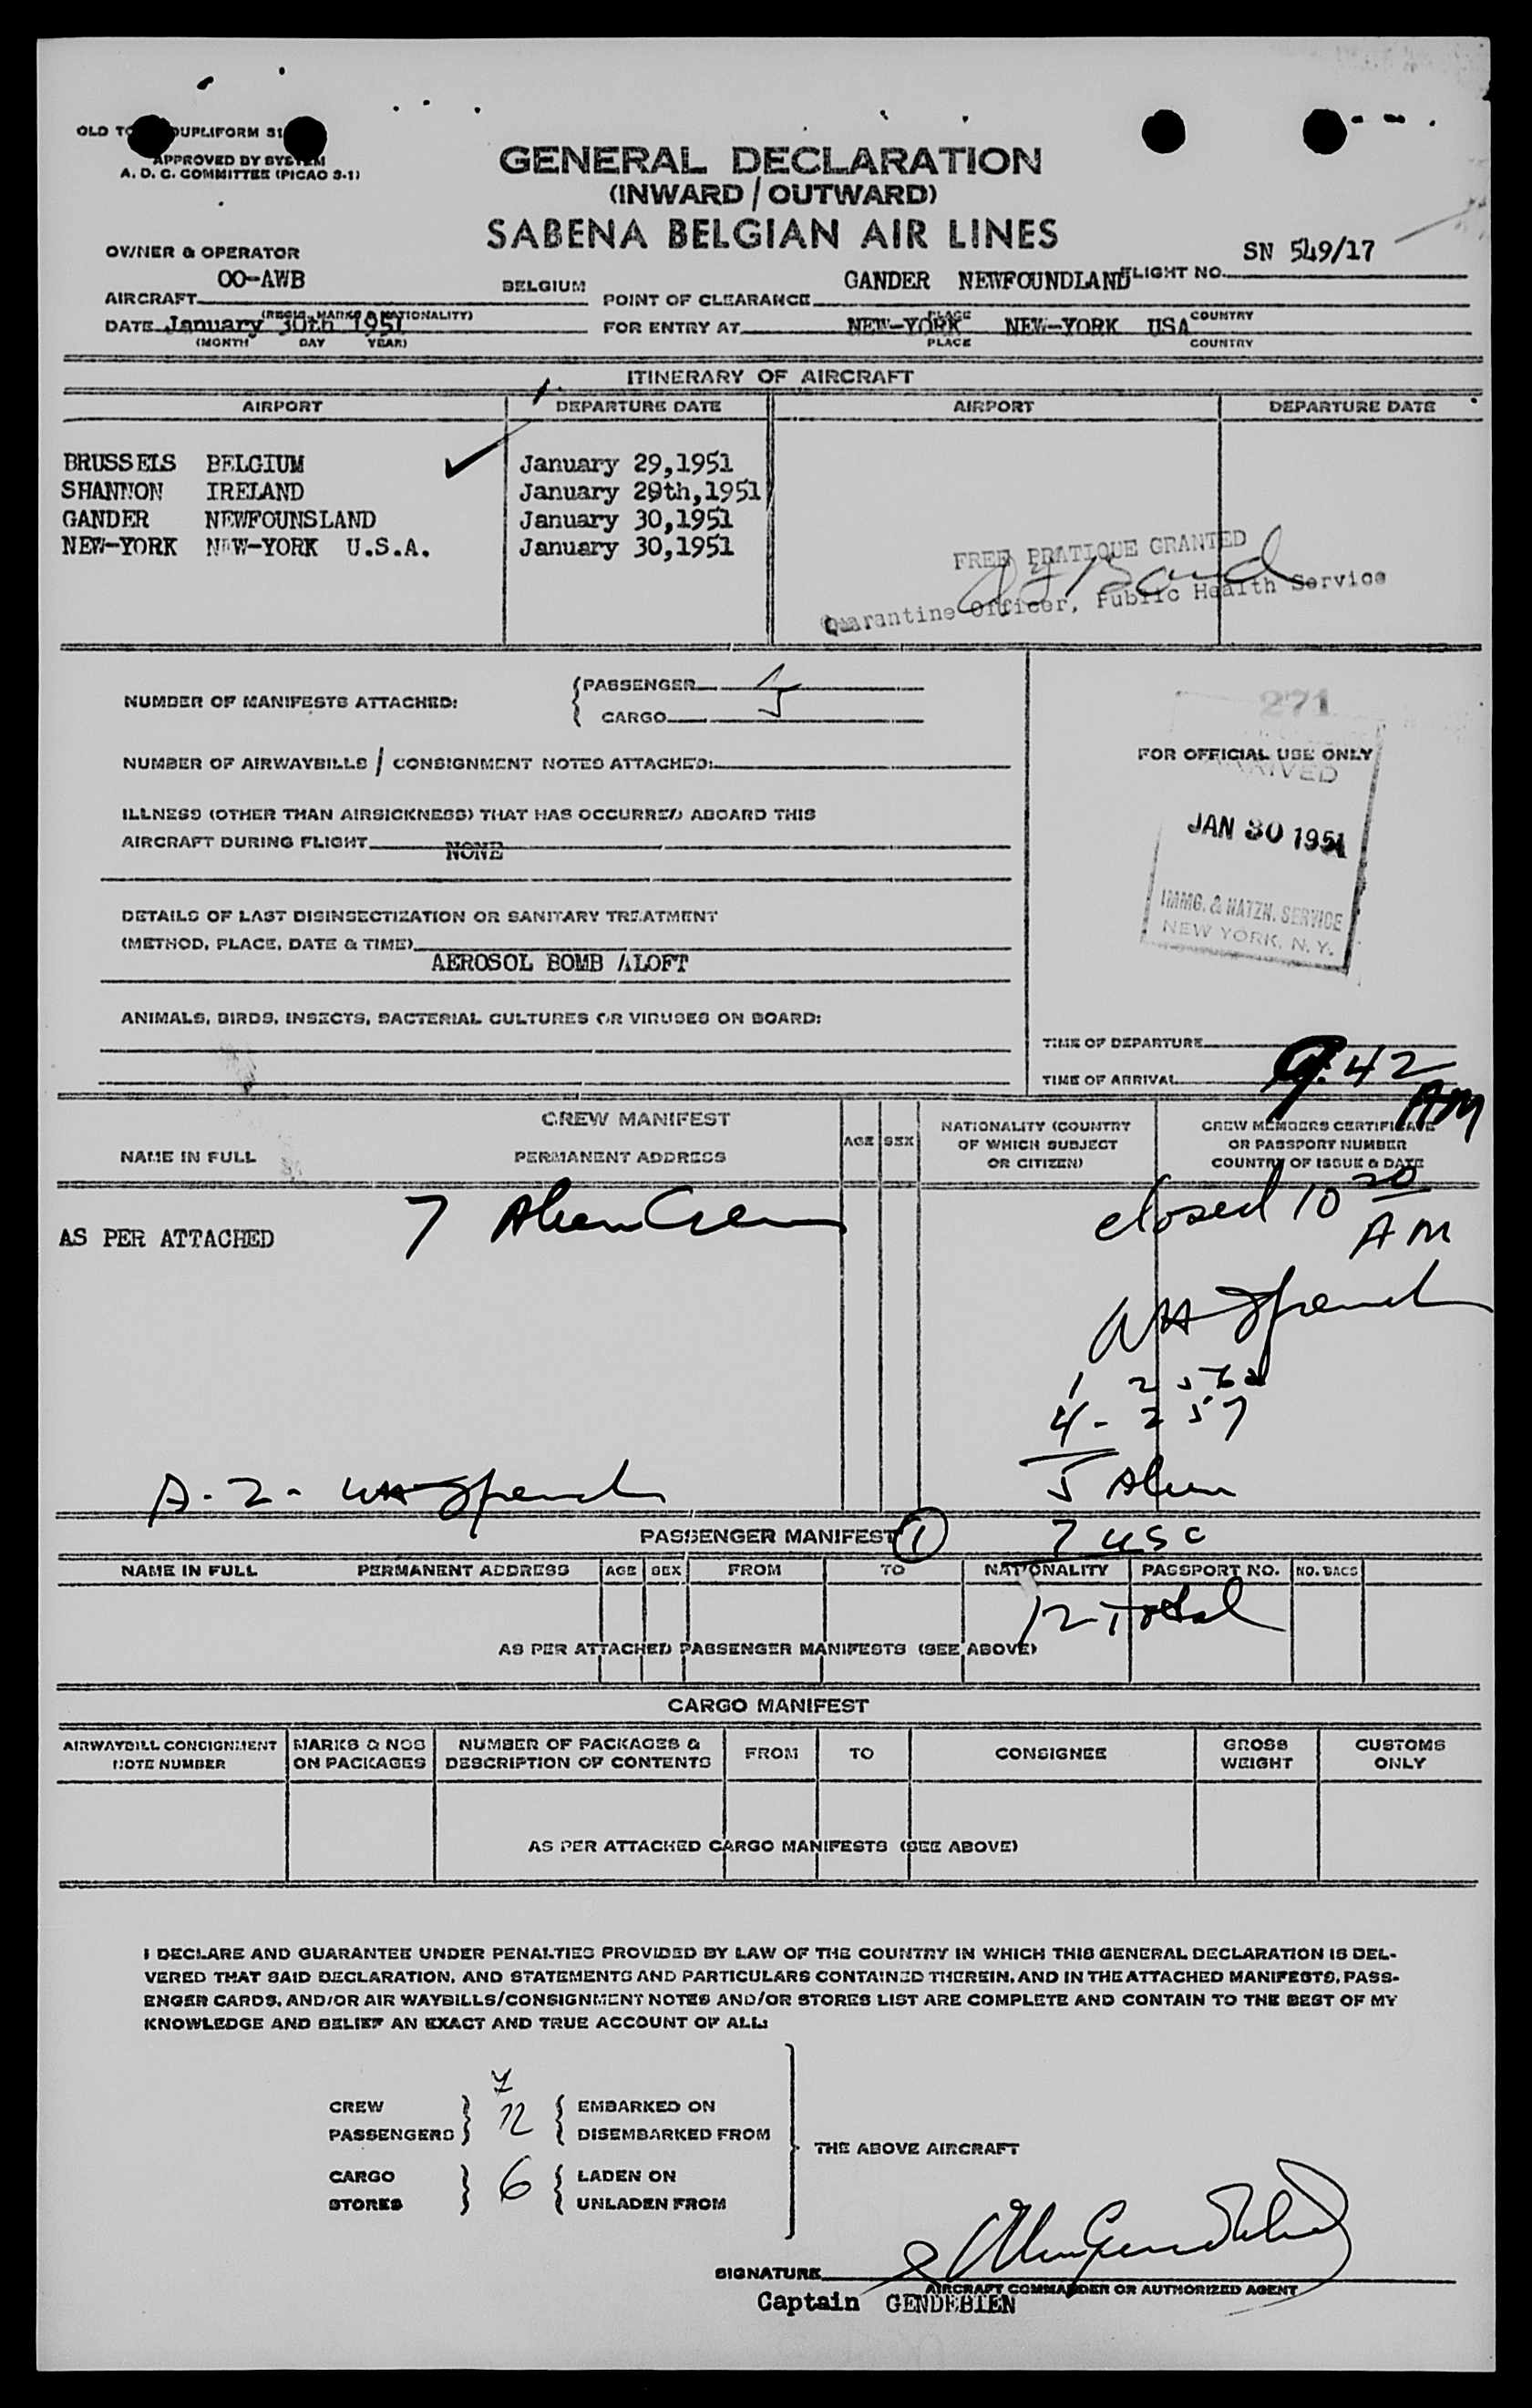 OLD TO DUPLIFORM 31
APPROVED BY SYSTEM
A. D. C. COMMITTEE (PICAO 3-1)
GENERAL DECLARATION
(INWARD / OUTWARD)
SABENA BELGIAN AIR LINES
OWNER & OPERATOR
SN 549/17
OO-AWB BELGIUM GANDER NEWFOUNDLAND FLIGHT NO.
AIRCRAFT POINT OF CLEARANCE
(REGIS. MARKS & NATIONALITY) PLACE COUNTRY
DATE January 30th 1951 FOR ENTRY AT NEW-YORK NEW-YORK USA
(MONTH DAY YEAR) PLACE COUNTRY
ITINERARY OF AIRCRAFT
AIRPORT DEPARTURE DATE AIRPORT DEPARTURE DATE
BRUSSELS BELGIUM January 29,1951
SHANNON IRELAND January 29th,1951
GANDER NEWFOUNSLAND January 30,1951
NEW-YORK NEW-YORK U.S.A. January 30,1951
FREE PRATIQUE GRANTED
Quarantine Officer, Public Health Service
NUMBER OF MANIFESTS ATTACHED: PASSENGER
CARGO
271
NUMBER OF AIRWAYBILLS / CONSIGNMENT NOTES ATTACHED:
FOR OFFICIAL USE ONLY
ARRIVED
JAN 30 1951
IMMG. & NATZN. SERVICE
NEW YORK, N. Y.
ILLNESS (OTHER THAN AIRSICKNESS) THAT HAS OCCURRED ABOARD THIS
AIRCRAFT DURING FLIGHT NONE
DETAILS OF LAST DISINSECTIZATION OR SANITARY TREATMENT
(METHOD, PLACE, DATE & TIME)
AEROSOL BOMB ALOFT
ANIMALS, BIRDS, INSECTS, BACTERIAL CULTURES OR VIRUSES ON BOARD:
TIME OF DEPARTURE
TIME OF ARRIVAL 9:42 AM
CREW MANIFEST
NAME IN FULL PERMANENT ADDRESS AGE SEX NATIONALITY (COUNTRY OF WHICH SUBJECT OR CITIZEN) CREW MEMBERS CERTIFICATE OR PASSPORT NUMBER COUNTRY OF ISSUE & DATE
AS PER ATTACHED 7 Alien Crew
closed 10 20 AM
4 - 257
5 Alien
A-2-
PASSENGER MANIFEST 1 7 USC
NAME IN FULL PERMANENT ADDRESS AGE SEX FROM TO NATIONALITY PASSPORT NO. NO. BAGS
12 Total
AS PER ATTACHED PASSENGER MANIFESTS (SEE ABOVE)
CARGO MANIFEST
AIRWAYBILL CONSIGNMENT NOTE NUMBER MARKS & NOS ON PACKAGES NUMBER OF PACKAGES & DESCRIPTION OF CONTENTS FROM TO CONSIGNEE GROSS WEIGHT CUSTOMS ONLY
AS PER ATTACHED CARGO MANIFESTS (SEE ABOVE)
I DECLARE AND GUARANTEE UNDER PENALTIES PROVIDED BY LAW OF THE COUNTRY IN WHICH THIS GENERAL DECLARATION IS DEL-
VERED THAT SAID DECLARATION, AND STATEMENTS AND PARTICULARS CONTAINED THEREIN, AND IN THE ATTACHED MANIFESTS, PASS-
ENGER CARDS, AND/OR AIR WAYBILLS/CONSIGNMENT NOTES AND/OR STORES LIST ARE COMPLETE AND CONTAIN TO THE BEST OF MY
KNOWLEDGE AND BELIEF AN EXACT AND TRUE ACCOUNT OF ALL:
7
CREW 12 EMBARKED ON
PASSENGERS DISEMBARKED FROM
THE ABOVE AIRCRAFT
CARGO 6 LADEN ON
STORES UNLADEN FROM
SIGNATURE
AIRCRAFT COMMANDER OR AUTHORIZED AGENT
Captain GENDEBIEN